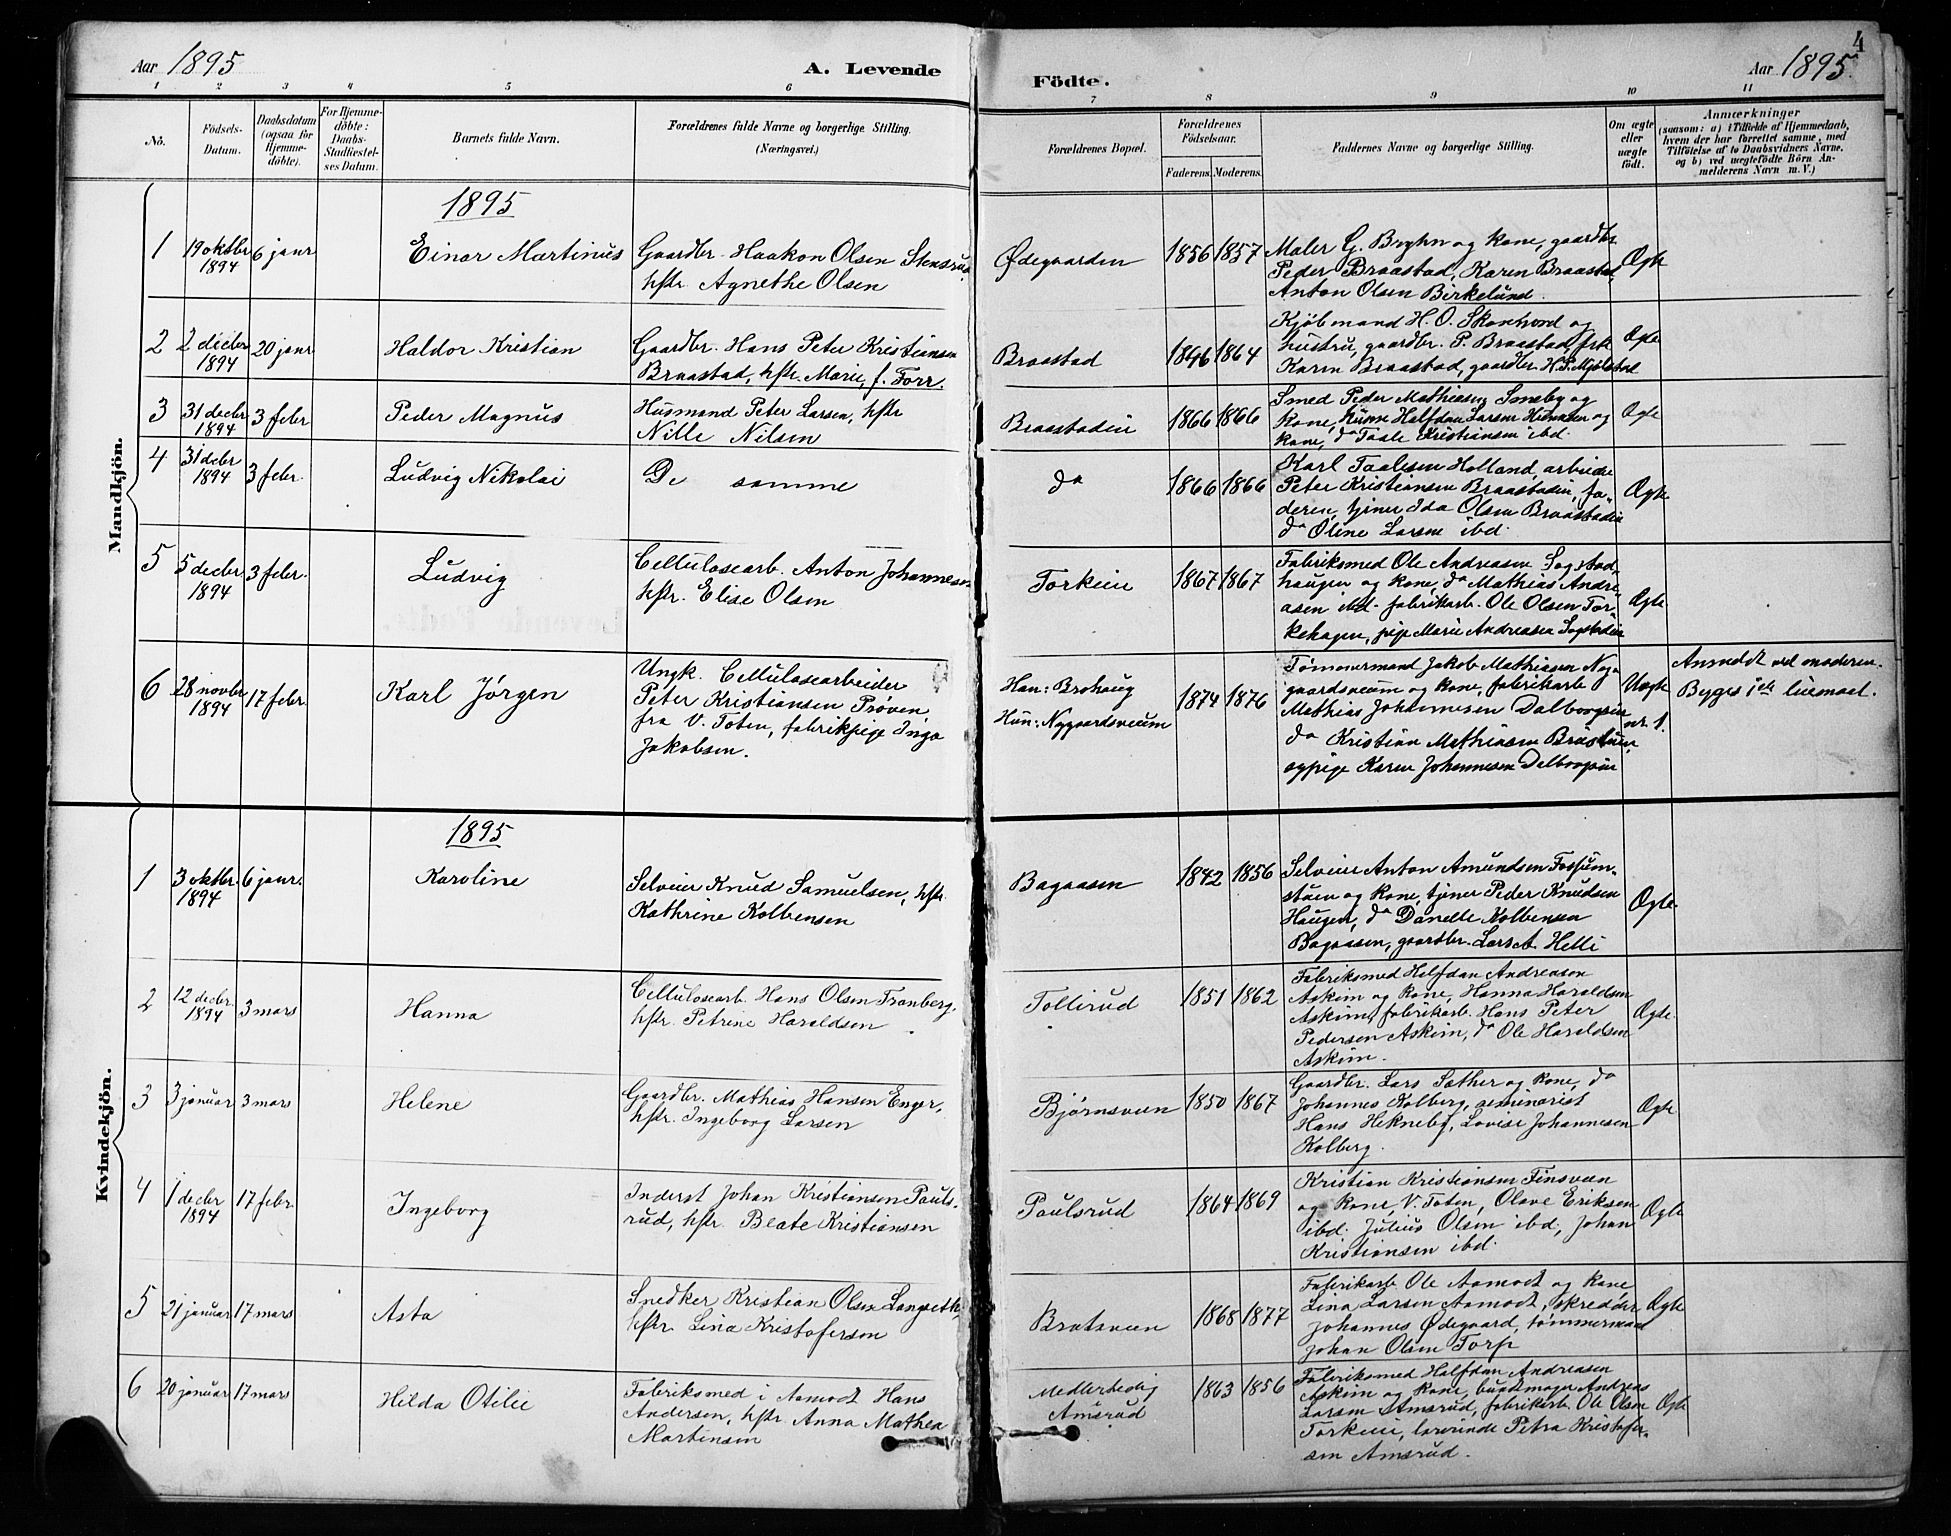 Aar 1895
A. Levende
Födte.
Aar 1895.
4
1 2 3 4 5 6 7 8 9 10 11
No.
Födsels-
Datum.
Daabsdatum
(ogsaa for
Hjemme-
döbte).
For Hjemme-
döbte:
Daabs-
Stadfæstel-
ses Datum.
Barnets fulde Navn.
Forældrenes fulde Navne og borgerlige Stilling.
(Næringsvei.)
Forældrenes Bopæl.
Forældrenes
Födselsaar.
Faderens. Moderens.
Faddernes Navne og borgerlige Stilling.
Om ægte
eller
uægte
födt.
Anmærkninger
(saasom: a) i Tilfælde af Hjemmedaab,
hvem der har forrettet samme, med
Tilföielse af to Daabsvidners Navne,
og b) ved uægtefödte Börn An-
melderens Navn m. V.)
Mandkjön.
1895
1
19 oktbr
1894
6 janr
Einar Martinus
Gaardbr. Haakon Olsen Stensrud,
hstr. Agnethe Olsen
Ødegaarden
1856 1857
Maler G. Bryhn og kone, gaardbr
Peder Braastad, Karen Braastad,
Anton Olsen Birkelund.
Ægte
2
2 decbr
1894
20 janr
Haldor Kristian
Gaardbr. Hans Peter Kristiansen
Braastad, hstr. Marie, f. Forr.
Braastad
1846 1864
Kjöbmand H. O. Skonhord og
hustru, gaardbr. P. Braastad, frk
Karen Braastad, gaardbr. H. P. Mjölstad
Ægte
3
31 decbr
1894
3 febr
Peder Magnus
Husmand Peter Larsen, hstr
Nille Nilsen
Braastadeie
1866 1866
Smed Peder Mathiesen Smeby og
kone, husm Halfdan Larsen Hunneie og
kone, do Taale Kristiansen ibd.
Ægte
4
31 decbr
1894
3 febr.
Ludvig Nikolai
De samme
do
1866 1866
Karl Taalesen Holland, arbeider
Peter Kristiansen Braastadeie, fa-
deren, tjener Ida Olsen Braastadeie
do Oline Larsen ibd.
Ægte
5
5 decbr.
1894
3 febr.
Ludvig
Cellulosearb. Anton Johannesen
hstr. Elise Olsen
Torkeie
1867 1867
Fabriksmed Ole Andreasen Sogstad
haugen og kone, do Mathias Andre-
asen ibd. fabrikarb. Ole Olsen Tor-
kehagen, pige Marie Andreasen Sogstadeie
Ægte.
6
28 novbr
1894
17 febr.
Karl Jørgen
Ungk. Cellulosearbeider
Peter Kristiansen Prøven
fra V. Toten, fabrikpige Inga
Jakobsen.
Han: Brohaug
Hun: Nygaardsveum
1874 1876
Tømmermand Jakob Mathiasen Nyg-
gaardsveum og kone, fabrikarb
Mathias Johannesen Dalborgeie
do Kristian Mathiasen
og pige Karen Johannesen Dalborgeie
Uægte
nr. 1.
Anmeldt ved moderen.
Kvindekjön.
1895
1
3 oktbr.
1894
6 janr.
Karoline
Selveier Knud Samuelsen, hstr.
Kathrine Kolbensen
Bagaasen
1842 1856
Selveier Anton Amundsen Fossum-
stuen og kone, tjener Peder Knudsen
Haugen, do Danelle Kolbensen
Bagaasen, gaardbr. Lars A. Helli
Ægte.
2
12 decbr.
1894
3 mars
Hanna
Cellulosearb. Hans Olsen Tranberg,
hstr. Petrine Haraldsen
Tollerud
1851 1862
Fabriksmed Halfdan Andreasen
Askim og kone, Hanna Haraldsen
Askim, fabrikarb. Hans Peter
Pedersen Askim, do Ole Haraldsen
Askim.
Ægte.
3
3 januar
3 mars
Helene
Gaardbr. Mathias Hansen Enger,
hstr. Ingeborg Larsen
Bjørnsveen
1850 1867
Gaardbr. Lars Sæther og kone, do
Johannes Kolberg, seminarist
Hans Hekneby, Lovise Johannesen
Kolberg.
Ægte
4
1 decbr
1894
17 febr.
Ingeborg
Inderst Johan Kristiansen Pauls-
rud, hstr. Beate Kristiansen
Paulsrud
1864 1869
Kristian Kristiansen Finsveen
og kone, V. Toten, Olave Eriksen
ibd. Julius Olsen ibd., Johan
Kristiansen ibd.
Ægte
5
21 januar
17 mars
Asta
Snedker Kristian Olsen Langseth,
hstr. Lina Kristofersen
Bratsveen
1868 1877
Fabrikarb Ole Aamodt og kone,
Lina Larsen Aamodt, skrædder
Johannes Ødegaard, tømmermand
Johan Olsen Torp
Ægte
6
20 januar
17 mars
Hilda Otelie
Fabriksmed i Aamodt Hans
Andersen, hstr. Anna Mathea
Martinsen
Medlerbedig
Amsrud
1863 1856
Fabriksmed Halfdan Andreasen
Askim og kone, buntmager Andreas
Larsen Amsrud, fabrikarb. Ole Olsen
Torkeie, lærerinde Petra Kristofer-
sen Amsrud.
Ægte